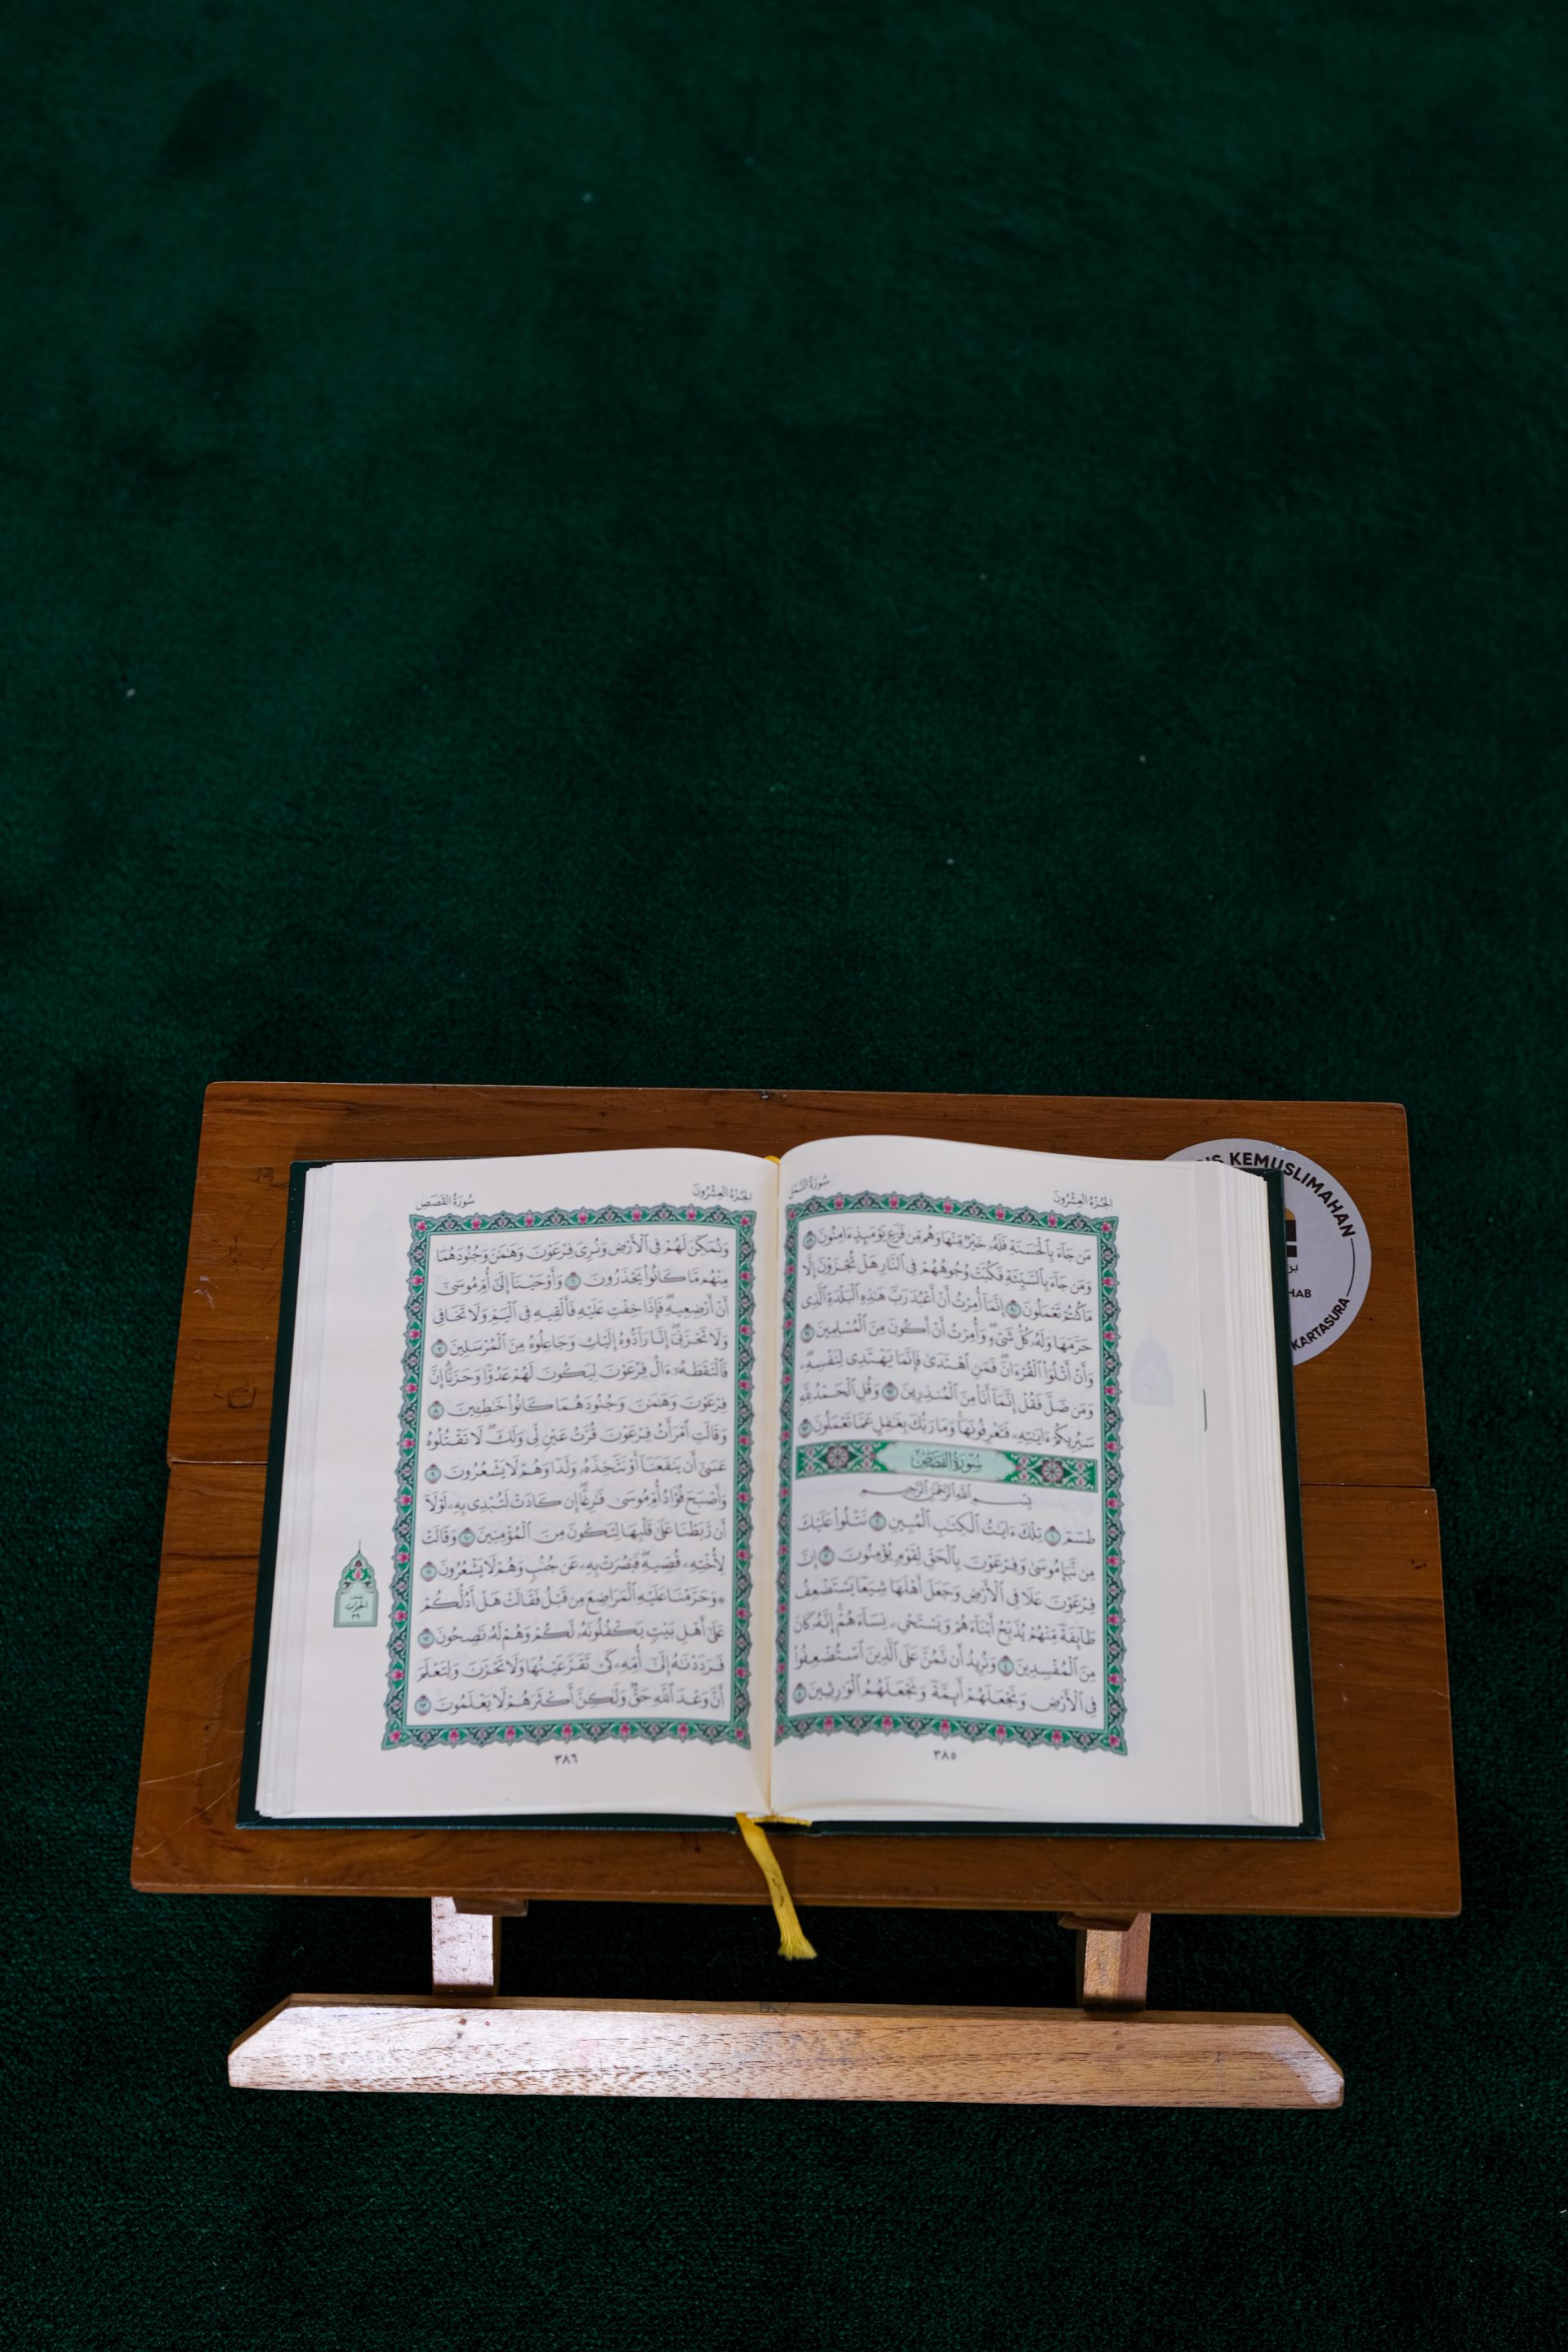 الجُزءُ العِشْرُونَ
سُورَةُ النَّمْلِ
مَن جَآءَ بِٱلْحَسَنَةِ فَلَهُۥ خَيْرٌ مِّنْهَا وَهُم مِّن فَزَعٍ يَوْمَئِذٍ ءَامِنُونَ ٨٩
وَمَن جَآءَ بِٱلسَّيِّئَةِ فَكُبَّتْ وُجُوهُهُمْ فِى ٱلنَّارِ هَلْ تُجْزَوْنَ إِلَّا
مَا كُنتُمْ تَعْمَلُونَ ٩٠ إِنَّمَآ أُمِرْتُ أَنْ أَعْبُدَ رَبَّ هَٰذِهِ ٱلْبَلْدَةِ ٱلَّذِى
حَرَّمَهَا وَلَهُۥ كُلُّ شَىْءٍ وَأُمِرْتُ أَنْ أَكُونَ مِنَ ٱلْمُسْلِمِينَ ٩١
وَأَنْ أَتْلُوَا۟ ٱلْقُرْءَانَ فَمَنِ ٱهْتَدَىٰ فَإِنَّمَا يَهْتَدِى لِنَفْسِهِۦ
وَمَن ضَلَّ فَقُلْ إِنَّمَآ أَنَا۠ مِنَ ٱلْمُنذِرِينَ ٩٢ وَقُلِ ٱلْحَمْدُ لِلَّهِ
سَيُرِيكُمْ ءَايَٰتِهِۦ فَتَعْرِفُونَهَا وَمَا رَبُّكَ بِغَٰفِلٍ عَمَّا تَعْمَلُونَ ٩٣
سُورَةُ القَصَصِ
بِسْمِ ٱللَّهِ ٱلرَّحْمَٰنِ ٱلرَّحِيمِ
طسٓمٓ ١ تِلْكَ ءَايَٰتُ ٱلْكِتَٰبِ ٱلْمُبِينِ ٢ نَتْلُوا۟ عَلَيْكَ
مِن نَّبَإِ مُوسَىٰ وَفِرْعَوْنَ بِٱلْحَقِّ لِقَوْمٍ يُؤْمِنُونَ ٣ إِنَّ
فِرْعَوْنَ عَلَا فِى ٱلْأَرْضِ وَجَعَلَ أَهْلَهَا شِيَعًا يَسْتَضْعِفُ
طَآئِفَةً مِّنْهُمْ يُذَبِّحُ أَبْنَآءَهُمْ وَيَسْتَحْىِۦ نِسَآءَهُمْ إِنَّهُۥ كَانَ
مِنَ ٱلْمُفْسِدِينَ ٤ وَنُرِيدُ أَن نَّمُنَّ عَلَى ٱلَّذِينَ ٱسْتُضْعِفُوا۟
فِى ٱلْأَرْضِ وَنَجْعَلَهُمْ أَئِمَّةً وَنَجْعَلَهُمُ ٱلْوَٰرِثِينَ ٥
٣٨٥
الجُزءُ العِشْرُونَ
سُورَةُ القَصَصِ
وَنُمَكِّنَ لَهُمْ فِى ٱلْأَرْضِ وَنُرِىَ فِرْعَوْنَ وَهَٰمَٰنَ وَجُنُودَهُمَا
مِنْهُم مَّا كَانُوا۟ يَحْذَرُونَ ٦ وَأَوْحَيْنَآ إِلَىٰٓ أُمِّ مُوسَىٰٓ
أَنْ أَرْضِعِيهِ فَإِذَا خِفْتِ عَلَيْهِ فَأَلْقِيهِ فِى ٱلْيَمِّ وَلَا تَخَافِى
وَلَا تَحْزَنِىٓ إِنَّا رَآدُّوهُ إِلَيْكِ وَجَاعِلُوهُ مِنَ ٱلْمُرْسَلِينَ ٧
فَٱلْتَقَطَهُۥٓ ءَالُ فِرْعَوْنَ لِيَكُونَ لَهُمْ عَدُوًّا وَحَزَنًا إِنَّ
فِرْعَوْنَ وَهَٰمَٰنَ وَجُنُودَهُمَا كَانُوا۟ خَٰطِـِٔينَ ٨
وَقَالَتِ ٱمْرَأَتُ فِرْعَوْنَ قُرَّتُ عَيْنٍ لِّى وَلَكَ لَا تَقْتُلُوهُ
عَسَىٰٓ أَن يَنفَعَنَآ أَوْ نَتَّخِذَهُۥ وَلَدًا وَهُمْ لَا يَشْعُرُونَ ٩
وَأَصْبَحَ فُؤَادُ أُمِّ مُوسَىٰ فَٰرِغًا إِن كَادَتْ لَتُبْدِى بِهِۦ لَوْلَآ
أَن رَّبَطْنَا عَلَىٰ قَلْبِهَا لِتَكُونَ مِنَ ٱلْمُؤْمِنِينَ ١٠ وَقَالَتْ
لِأُخْتِهِۦ قُصِّيهِ فَبَصُرَتْ بِهِۦ عَن جُنُبٍ وَهُمْ لَا يَشْعُرُونَ ١١
۞ وَحَرَّمْنَا عَلَيْهِ ٱلْمَرَاضِعَ مِن قَبْلُ فَقَالَتْ هَلْ أَدُلُّكُمْ
عَلَىٰٓ أَهْلِ بَيْتٍ يَكْفُلُونَهُۥ لَكُمْ وَهُمْ لَهُۥ نَٰصِحُونَ ١٢
فَرَدَدْنَٰهُ إِلَىٰٓ أُمِّهِۦ كَىْ تَقَرَّ عَيْنُهَا وَلَا تَحْزَنَ وَلِتَعْلَمَ
أَنَّ وَعْدَ ٱللَّهِ حَقٌّ وَلَٰكِنَّ أَكْثَرَهُمْ لَا يَعْلَمُونَ ١٣
الحِزْب
٣٩
٣٨٦
KEMUSLIMAHAN
KARTASURA